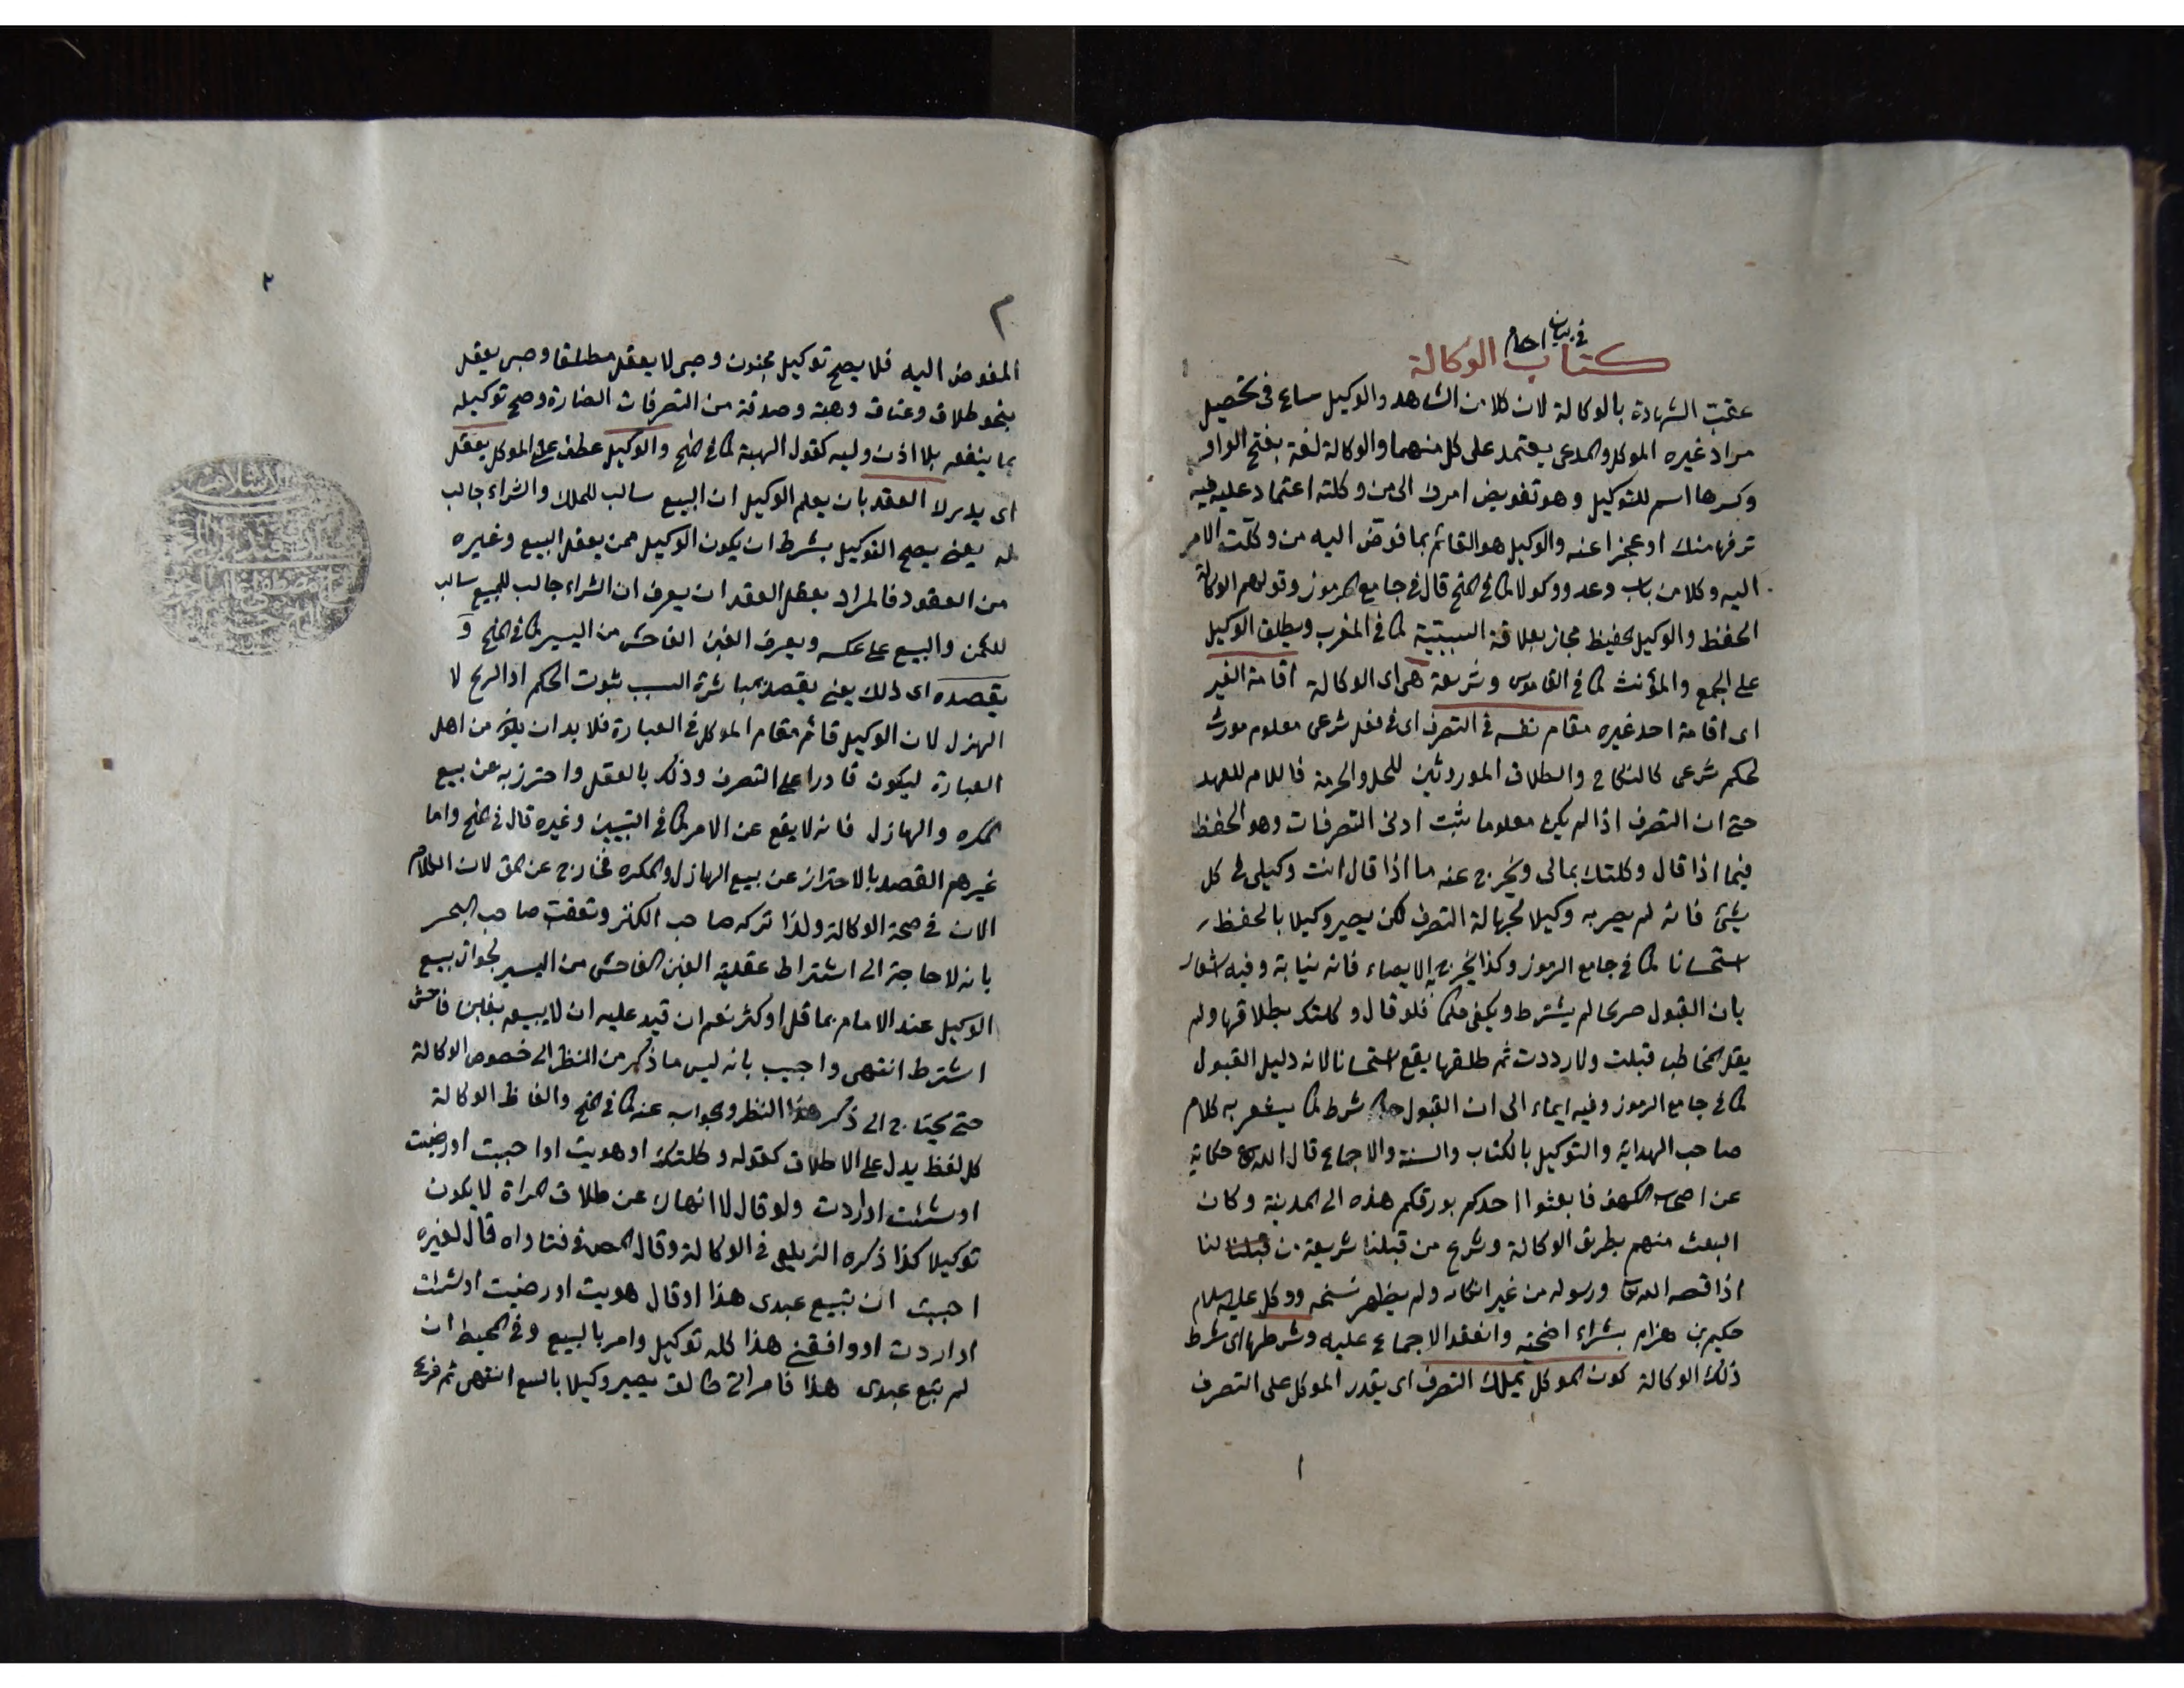 في بيان احكام
كتاب الوكالة
عقب الشهادة بالوكالة لان كلا من الشاهد والوكيل ساع في تحصيل
مراد غيره الموكل والمدعي يعتمد على كل منهما والوكالة لغة بفتح الواو
وكسرها اسم للتوكيل وهو تفويض امرك الى من وكلته اعتماد عليه فيه
ترفها منك او عجزا عنه والوكيل هو القائم بما فوض اليه من وكلت الامر
اليه وكلا من باب وعد ووكولا كما في المنح قال في جامع الرموز وقولهم الوكالة
الحفظ والوكيل الحفيظ مجاز بعلاقة السببية كما في المغرب ويطلق الوكيل
على الجمع والمؤنث كما في القاموس وشريعة هي اى الوكالة اقامة الغير
اى اقامة احد غيره مقام نفسه في التصرف اى في فعل شرعى معلوم مورث
لحكم شرعى كالنكاح والطلاق الموروثين للحل والحرمة فاللام للعهد
حتى ان التصرف اذا لم يكن معلوما يثبت ادنى التصرفات وهو الحفظ
فيما اذا قال وكلتك بمالى ويخرج عنه ما اذا قال انت وكيلى في كل
شئ فانه لم يصر به وكيلا لجهالة التصرف لكن يصير وكيلا بالحفظ
استحسانا كما في جامع الرموز وكذا يخرج الايصاء فانه نيابة وفيه اشعار
بان القبول صريحا لم يشترط ويكفى حكما فلو قال وكلتك بطلاقها ولم
يقل المخاطب قبلت ولا رددت ثم طلقها يقع استحسانا لانه دليل القبول
كما في جامع الرموز وفيه ايماء الى ان القبول شرط كما يشعر به كلام
صاحب الهداية والتوكيل بالكتاب والسنة والاجماع قال الله تع حكاية
عن اصحاب الكهف فابعثوا احدكم بورقكم هذه الى المدينة وكان
البعث منهم بطريق الوكالة وشرع من قبلنا شريعة لنا
اذا قصه الله تعا ورسوله من غير انكار ولم يظهر نسخه ووكل عليه السلام
حكيم بن حزام بشراء اضحية وانعقد الاجماع عليه وشرطها اى شرط
ذلك الوكالة كون الموكل يملك التصرف اى يقدر الموكل على التصرف
١
٢
٢
المفوض اليه فلا يصح توكيل مجنون وصبى لا يعقل مطلقا وصبى يعقل
بنحو طلاق وعتاق وهبة وصدقة من التصرفات الضارة وصح توكيله
بما ينفعه بلا اذن وليه كقبول الهبة كما في المنح والوكيل عطف على الموكل يعقل
اى يدرك العقد بان يعلم الوكيل ان البيع سالب للملك والشراء جالب
له يعنى يصح التوكيل بشرط ان يكون الوكيل ممن يعقل البيع وغيره
من العقود فالمراد بعقل العقد ان يعرف ان الشراء جالب للمبيع سالب
للثمن والبيع على عكسه ويعرف الغبن الفاحش من اليسير كما في المنح و
يقصده اى ذلك يعنى يقصد بمباشرة السبب ثبوت الحكم او الربح لا
الهزل لان الوكيل قائم مقام الموكل في العبارة فلا بد ان يكون من اهل
العبارة ليكون قادرا على التصرف وذلك بالعقل واحترز به عن بيع
المكره والهازل فانه لا يقع عن الامر كما في التبيين وغيره قال في المنح واما
غيرهم القصد بالاحتراز عن بيع الهازل والمكره فخارج عن لان الكلام
الان في صحة الوكالة ولذا تركه صاحب الكنز وتعقب صاحب البحر
بانه لا حاجة الى اشتراط عقلية الغبن الفاحش من اليسير لجواز بيع
الوكيل عند الامام بما قل او كثر نعم ان قيد عليه ان لا يبيعه بغبن فاحش
اشترط انتهى واجيب بانه ليس ما ذكر من النظر الى خصوص الوكالة
حتى يحتاج الى ذكر هذا النظر والجواب عنه كما في المنح والفاظ الوكالة
كل لفظ يدل على الاطلاق كقوله وكلتك او هويت او احببت او رضيت
او شئت او اردت ولو قال لا انهاك عن طلاق امراة لا يكون
توكيلا كذا ذكره الزيلعى في الوكالة وقال المص في فتاواه قال لغيره
احببت ان تبيع عبدى هذا او قال هويت او رضيت او شئت
او اردت او وافقنى هذا كله توكيل وامر بالبيع وفي المحيط ان
لم تبع عبدى هذا فامراتى طالق يصير وكيلا بالبيع انتهى ثم فرع